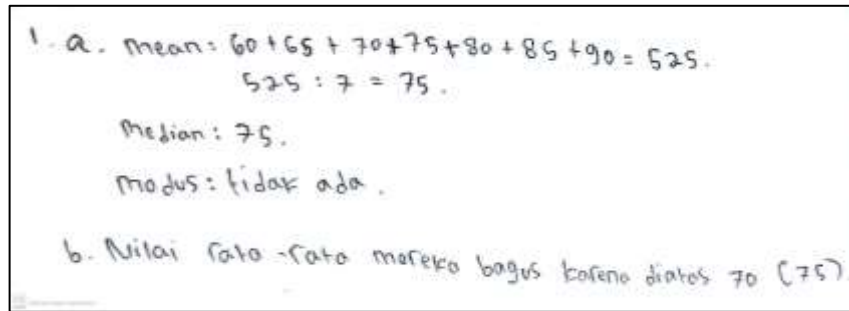 1. a. mean: 60+65 + 70+75+80+85+90= 525.
525 : 7 = 75.
Median: 75.
modus: tidak ada.
b. Nilai rata-rata mereka bagus karena diatas 70 (75)